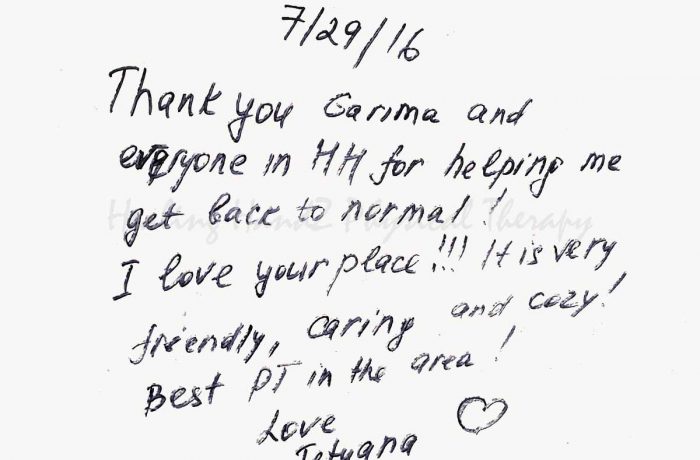 7/29/16
Thank you Garima and
everyone in HH for helping me
get back to normal!
Healing Handz Physical Therapy
I love your place!!! It is very
friendly, caring and cozy!
Best PT in the area!
Love
Tetyana